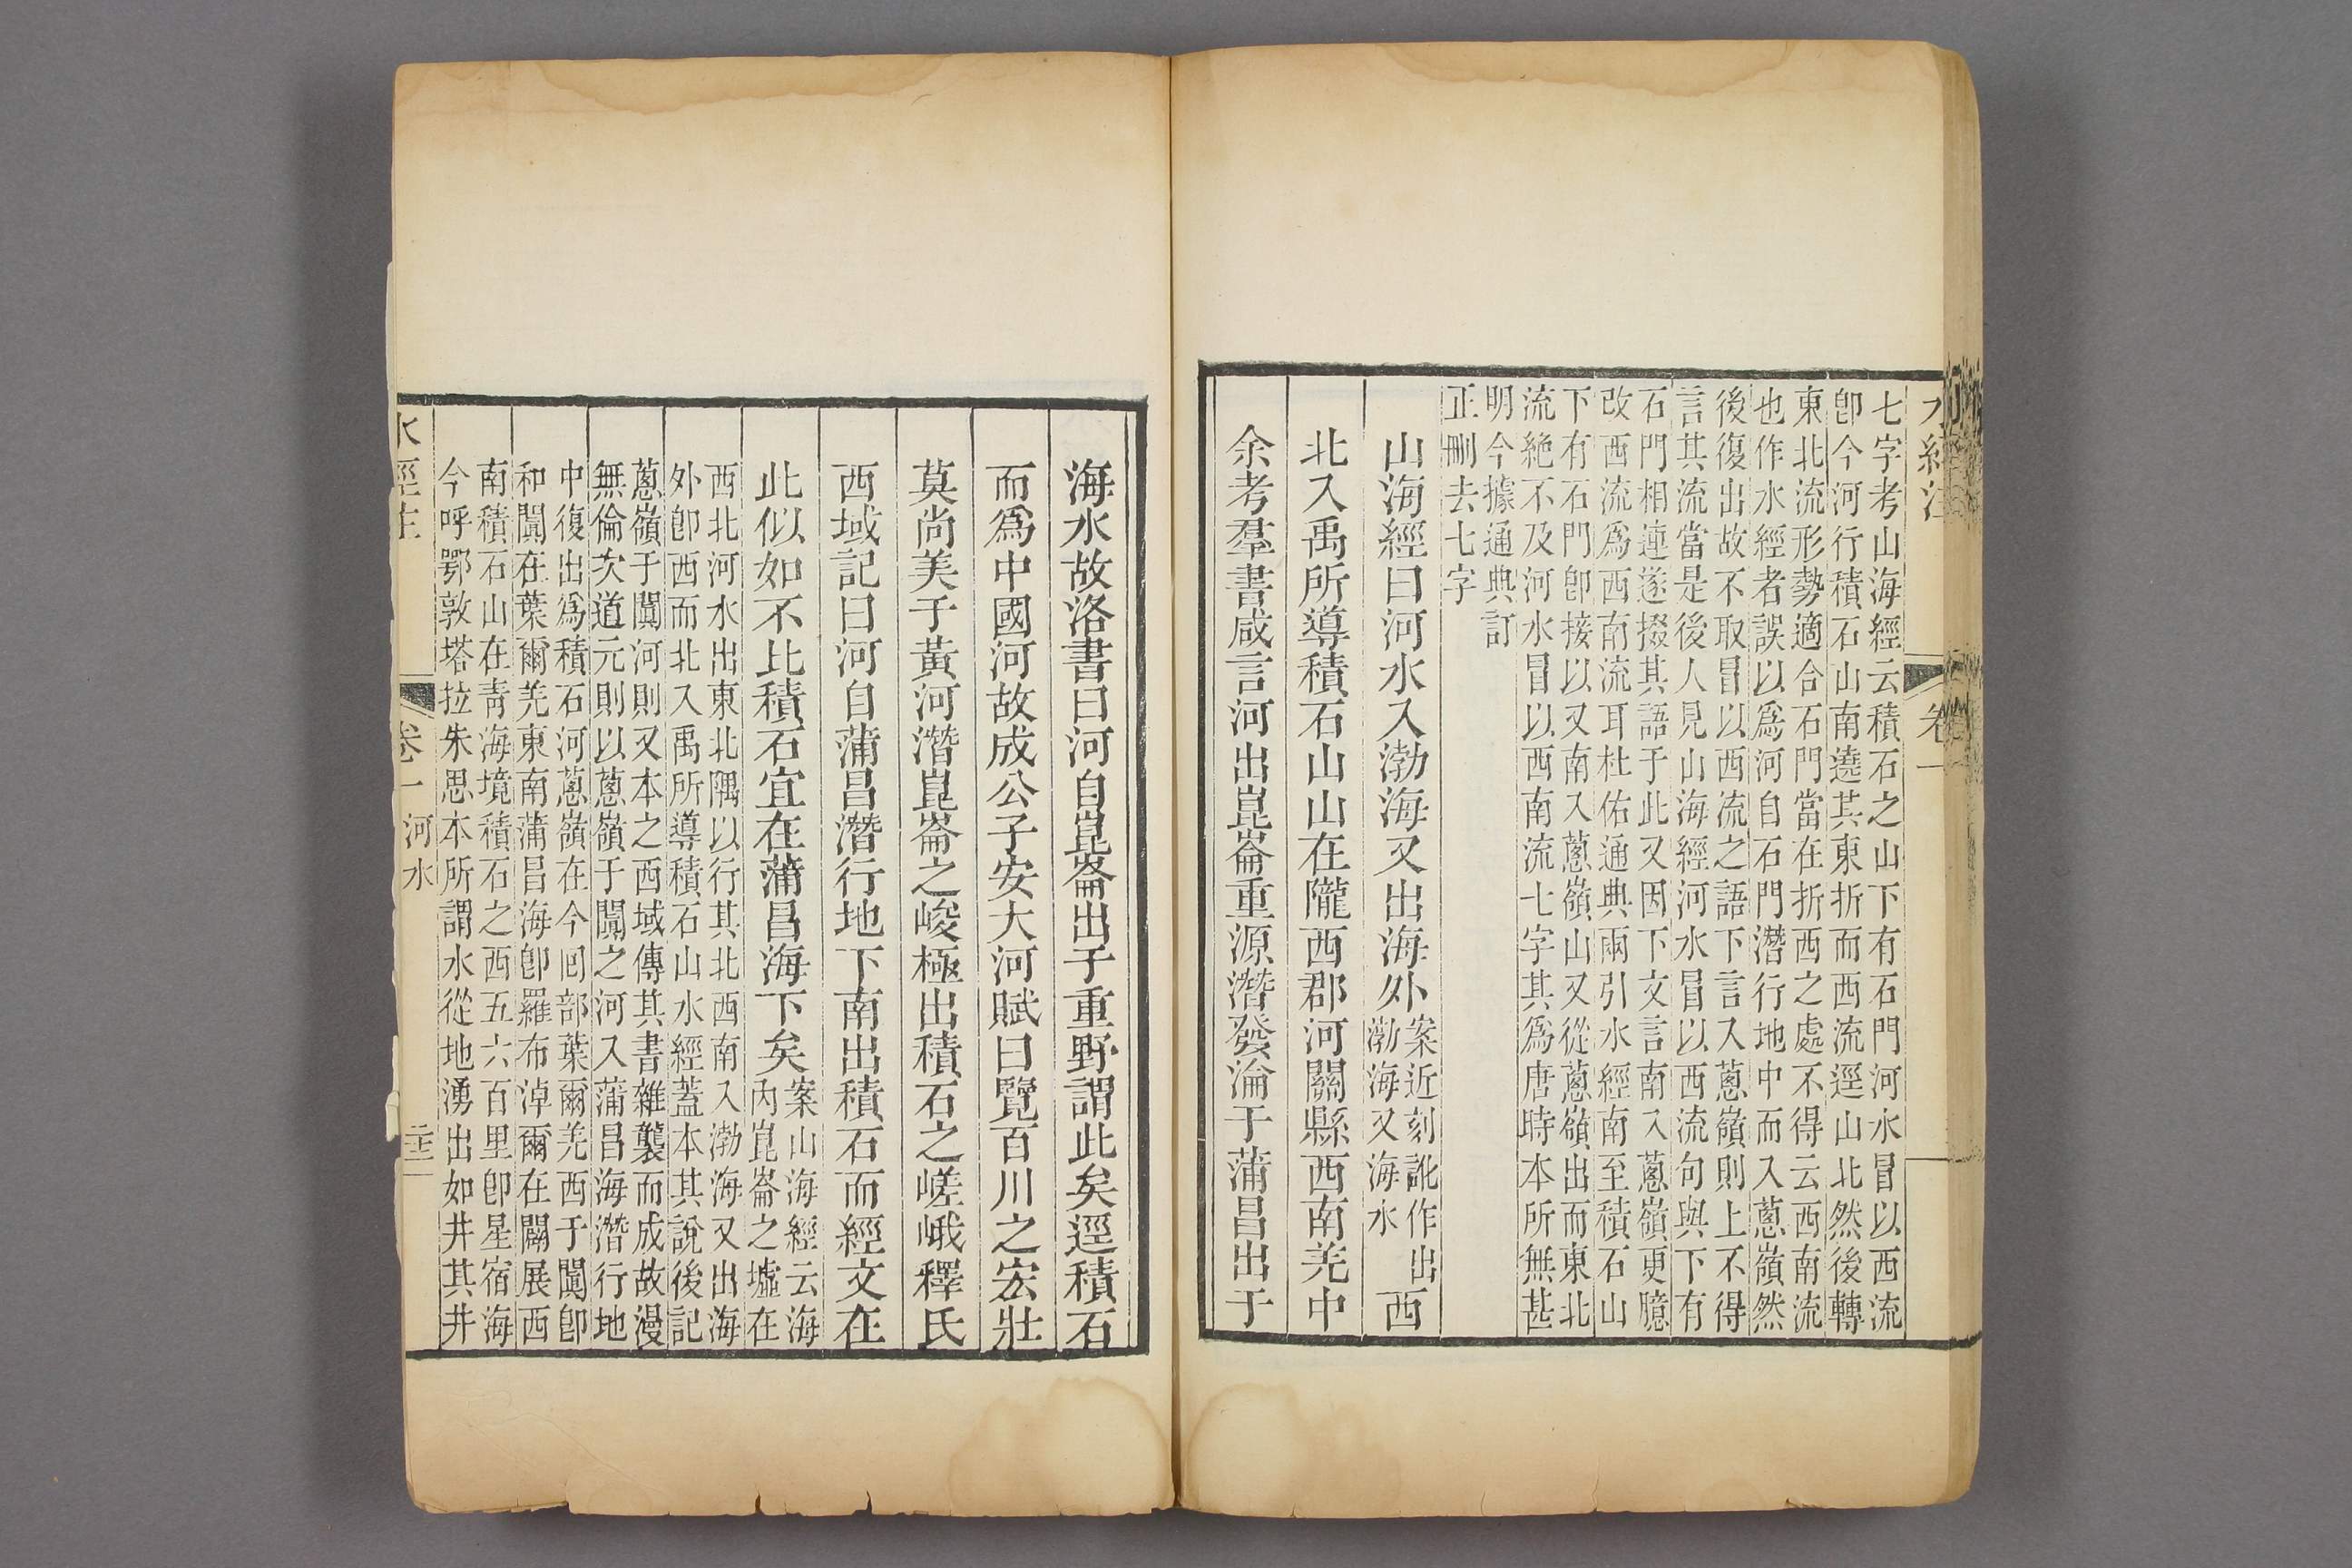 水經注 卷一
七字考山海經云積石之山下有石門河水冒以西流
卽今河行積石山南遶其東折而西流逕山北然後轉
東北流形勢適合石門當在折西之處不得云西南流
也作水經者誤以爲河自石門潛行地中而入蔥嶺然
後復出故不取冒以西流之語下言入蔥嶺則上不得
言其流當是後人見山海經河水冒以西流句與下有
石門相連遂掇其語于此又因下文言南入蔥嶺更臆
改西流爲西南流耳杜佑通典兩引水經南至積石山
下有石門卽接以又南入蔥嶺山又從蔥嶺出而東北
流絕不及河水冒以西南流七字其爲唐時本所無甚
明今據通典訂
正刪去七字
山海經曰河水入渤海又出海外案近刻訛作出渤海又海水西
北入禹所導積石山山在隴西郡河關縣西南羌中
余考羣書咸言河出崑崙重源潛發淪于蒲昌出于
海水故洛書曰河自崑崙出于重野謂此矣逕積石
而爲中國河故成公子安大河賦曰覽百川之宏壯
莫尚美于黃河潛崑崙之峻極出積石之嵯峨釋氏
西域記曰河自蒲昌潛行地下南出積石而經文在
此似如不比積石宜在蒲昌海下矣案山海經云海
內崑崙之墟在
西北河水出東北隅以行其北西南入渤海又出海
外卽西而北入禹所導積石山水經蓋本其說後記
蔥嶺于闐河則又本之西域傳其書雜襲而成故漫
無倫次道元則以蔥嶺于闐之河入蒲昌海潛行地
中復出爲積石河蔥嶺在今回部葉爾羌西于闐卽
和闐在葉爾羌東南蒲昌海卽羅布淖爾在闢展西
南積石山在靑海境積石之西五六百里卽星宿海
今呼鄂敦塔拉朱思本所謂水從地湧出如井其井
水經注 卷一 河水